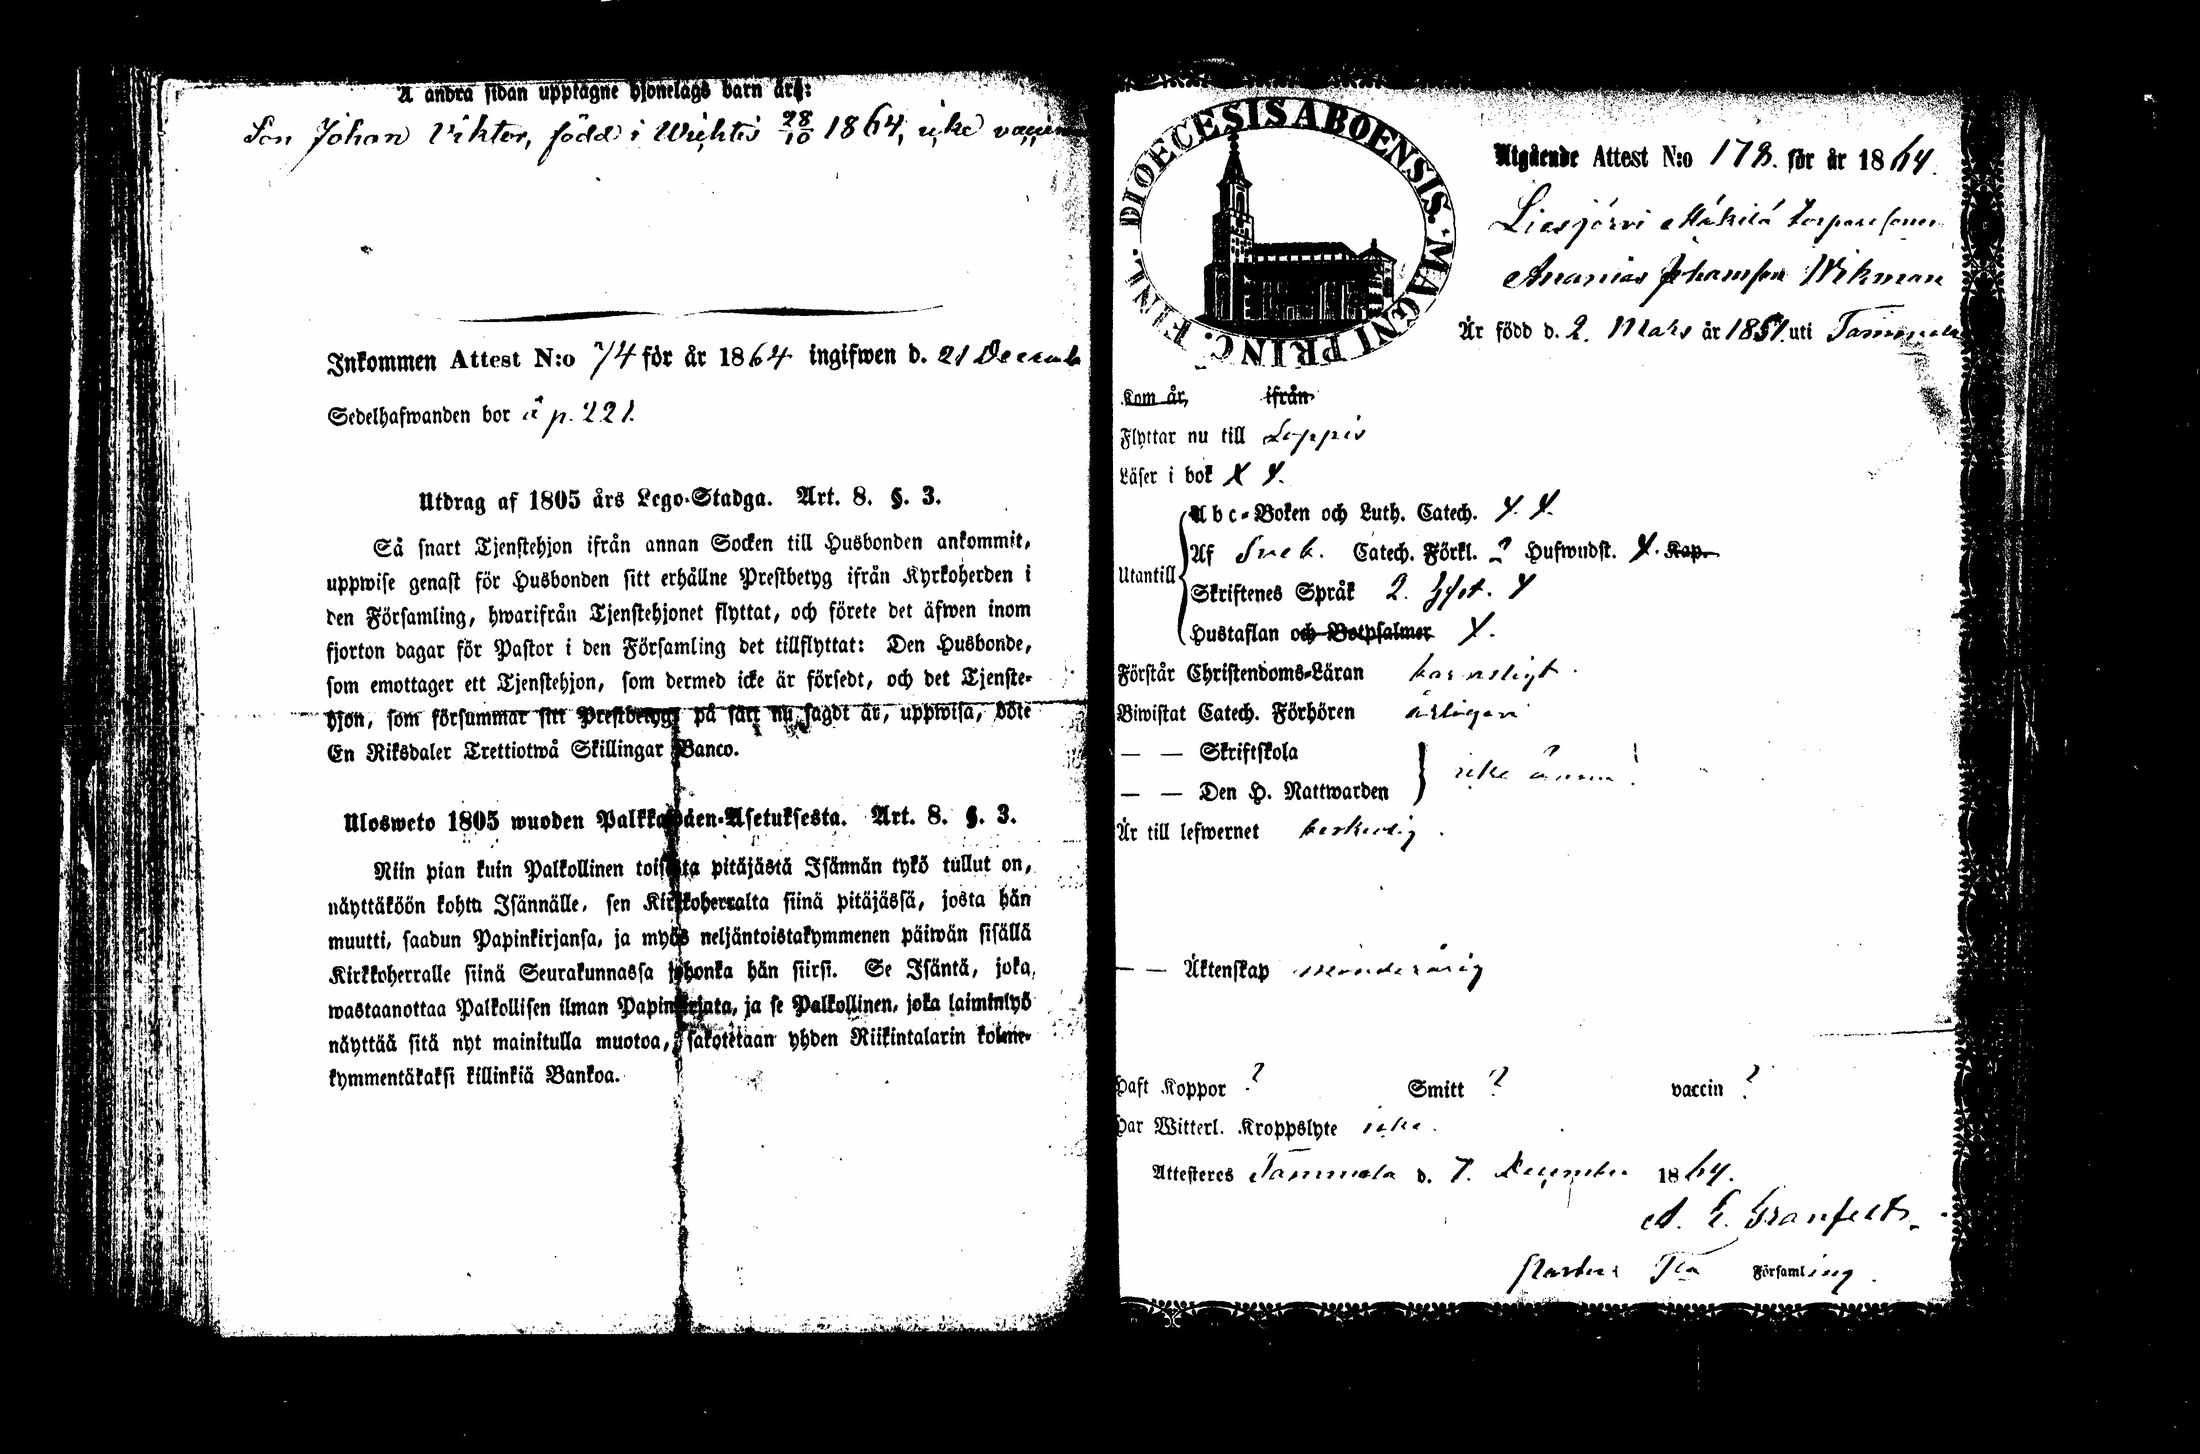 Å andra sidan upptagne hjonelags barn äro:
Son Johan Viktor, född i Wichtis 28/10 1864, icke vaccin
Inkommen Attest N:o 74 för år 1864 ingifwen d. 21 Decemb
Sedelhafwanden bor å p. 221.
Utdrag af 1805 års Lego-Stadga. Art. 8. §. 3.
Så snart Tjenstehjon ifrån annan Socken till Husbonden ankommit,
uppwise genast för Husbonden sitt erhållne Prestbetyg ifrån Kyrkoherden i
den Församling, hwarifrån Tjenstehjonet flyttat, och förete det äfwen inom
fjorton dagar för Pastor i den Församling det tillflyttat: Den Husbonde,
som emottager ett Tjenstehjon, som dermed icke är försedt, och det Tjenste-
hjon, som försummar sitt Prestbetyg på sätt nu sagdt är, uppwisa, böte
En Riksdaler Trettiotwå Skillingar Banco.
Ulosweto 1805 wuoden Palkkawäen-Asetuksesta. Art. 8. §. 3.
Niin pian kuin Palkollinen toisesta pitäjästä Isännän tykö tullut on,
näyttäköön kohta Isännälle, sen Kirkkoherralta siinä pitäjässä, josta hän
muutti, saadun Papinkirjansa, ja myös neljäntoistakymmenen päiwän sisällä
Kirkkoherralle siinä Seurakunnassa johonka hän siirsi. Se Isäntä, joka,
wastaanottaa Palkollisen ilman Papinkirjata, ja se Palkollinen, joka laiminlyö
näyttää sitä nyt mainitulla muotoa, sakotetaan yhden Riikintalarin kolme-
kymmentäkaksi killinkiä Bankoa.
DIOECESIS ABOENSIS. MAGNI PRINC. FINL.
Utgående Attest N:o 178. för år 1864.
Liesjärvi Mäkilä torpare sonen
Ananias Johansson Wikman
Är född d. 2. Mars år 1851. uti Tammela
Kom år, ifrån
Flyttar nu till Loppis
Läser i bok X X.
Utantill
Abc-Boken och Luth. Catech. X. X.
Af Sveb. Catech. Förkl. ? Hufwudst. X. Kap.
Skriftenes Språk 2. X
Hustaflan och Botpsalmer X.
Förstår Christendoms-Läran barnsligt.
Biwistat Catech. Förhören årligen
— — Skriftskola
— — Den H. Nattwarden } icke ännu!
Är till lefwernet beskedlig.
— — Äktenskap minderårig
Haft Koppor ? Smitt ? vaccin ?
Har Witterl. Kroppslyte icke.
Attesteres Tammela d. 7. December 1864.
A. E. Granfelt.
Församling.